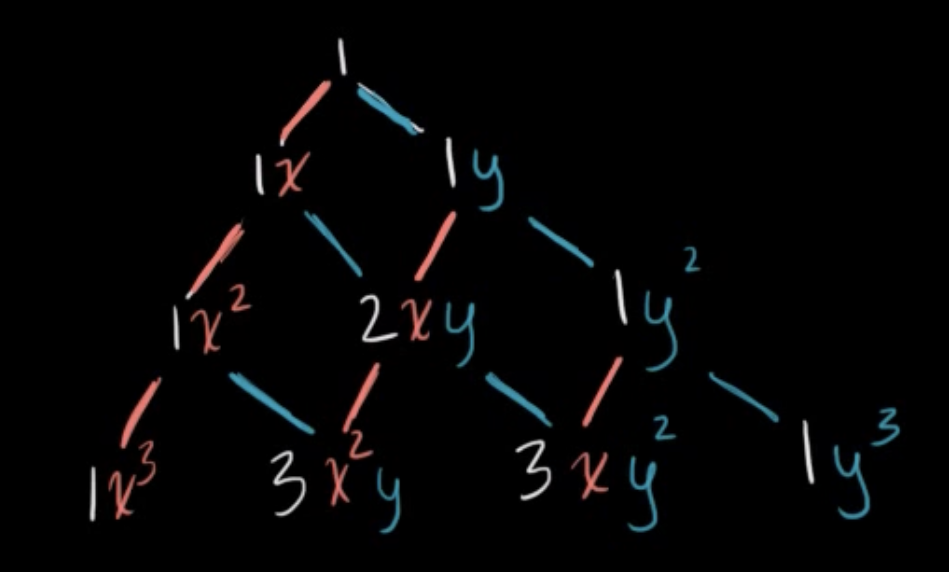 1
1x 1y
1x² 2xy 1y²
1x³ 3x²y 3xy² 1y³